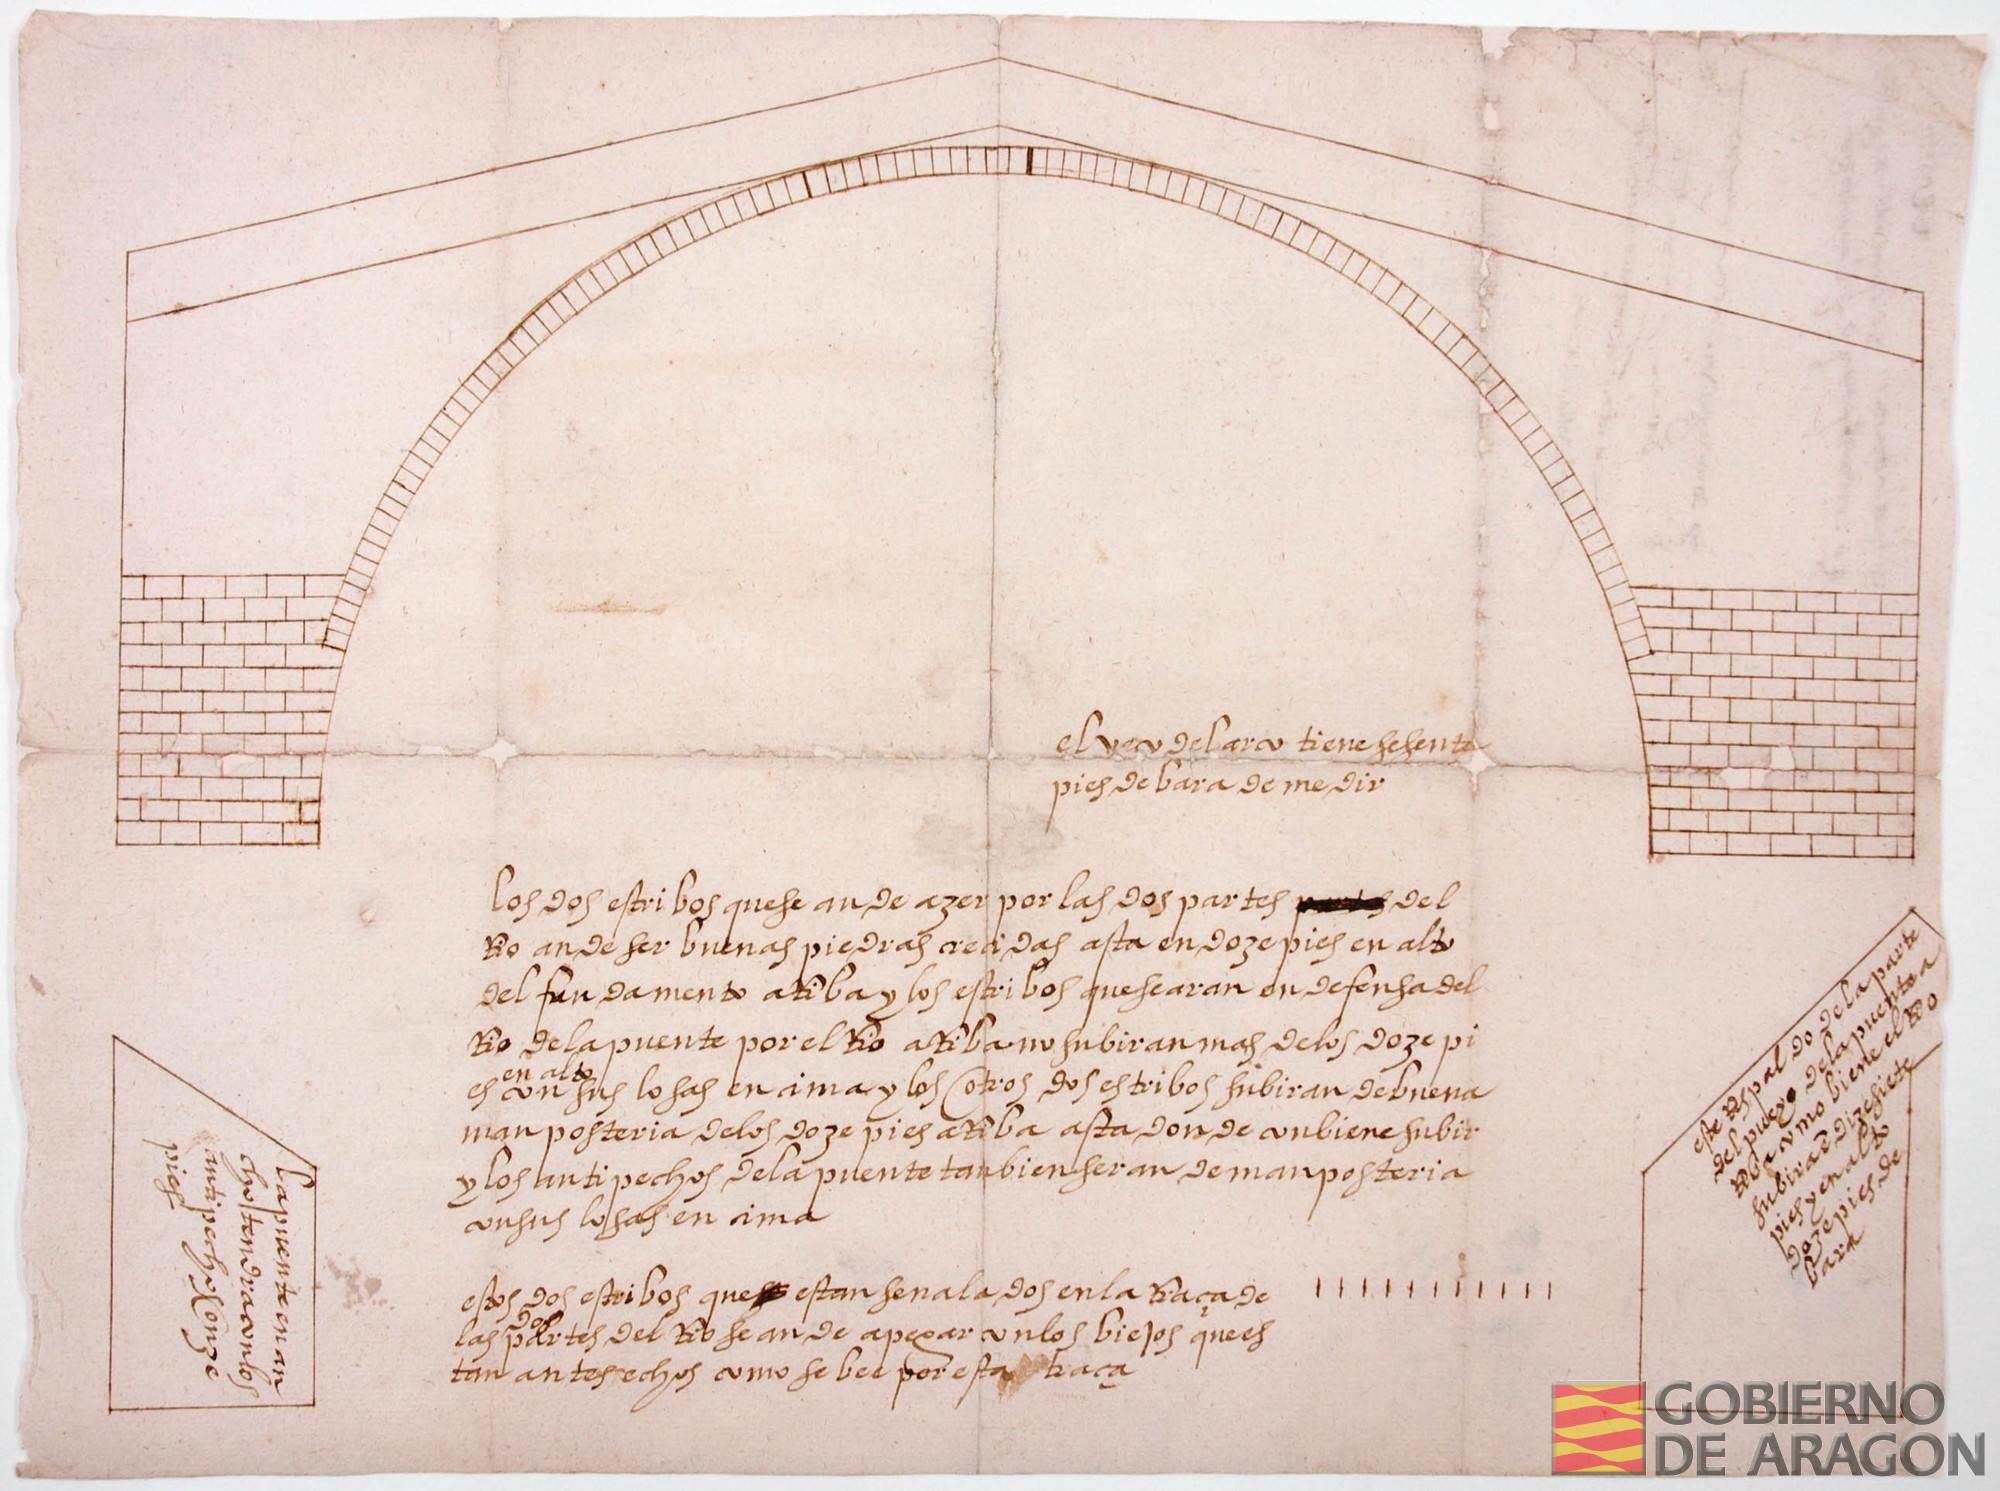 el veco del arco tiene sesenta
pies de bara de medir
los dos estribos que se an de azer por las dos partes del
Rio an de ser buenas piedras crecidas asta en doze pies en alto
del fundamento aRiba y los estribos que se aran en defensa del
Rio de la puente por el Rio aRiba no subiran mas de los doze pi
en alto
es con sus losas en cima y los otros dos estribos subiran de buena
manposteria de los doze pies aRiba asta donde conbiene subir
y los antipechos de la puente tanbien seran de manposteria
con sus losas en cima
estos dos estribos que estan senalados en la traça de
dos
las partes del Rio se an de apegar con los biejos que es
tan antes echos como se bee por esta traça
la puente en an
cho tendra con los
antipechos onze
pies
este Respaldo de la parte
del pueyo de la puente a
Riba como biene el Rio
subira ē dizesiete
pies y en alto
doze pies de
bara
GOBIERNO
DE ARAGON